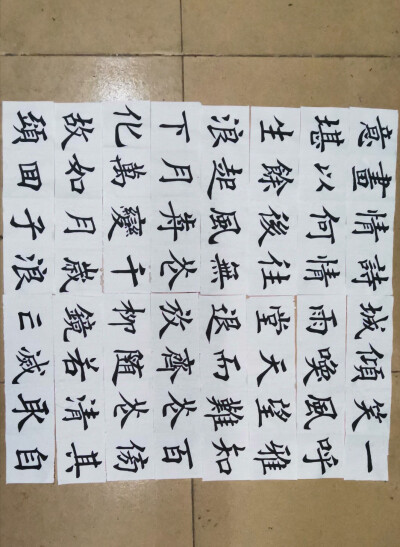 一笑傾城詩情畫意
呼風喚雨情何以堪
雅望天堂往後餘生
知難而退無風起浪
百花齊放花前月下
傍花随柳千變萬化
其清若鏡歲月如故
自取滅亡浪子回頭